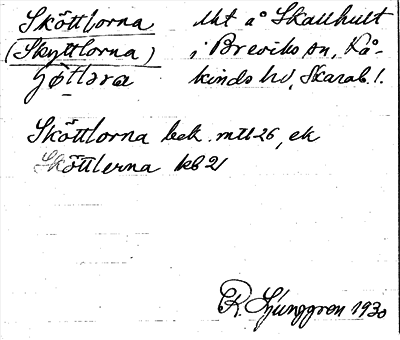 Sköttlorna lht å Skallhult
(Skyttlorna) i Breviks sn, Kå-
kinds hd, Skarab. l.
Sköttlorna bek. mtl 26, ek
Sköttlerna kb 21
R. Ljunggren 1930